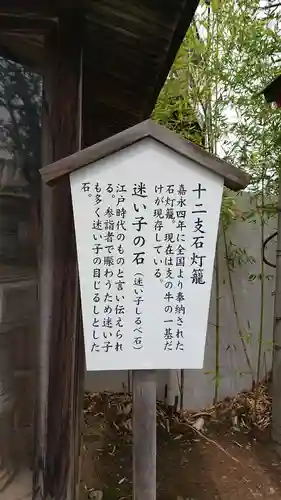 十二支石灯籠
嘉永四年に全国より奉納された
石灯籠。現在は支の牛の一基だ
けが現存している。
迷い子の石（迷い子しるべ石）
江戸時代のものと言い伝えられ
る。参詣者で賑わうため迷い子
も多く迷い子の目じるしとした
石。